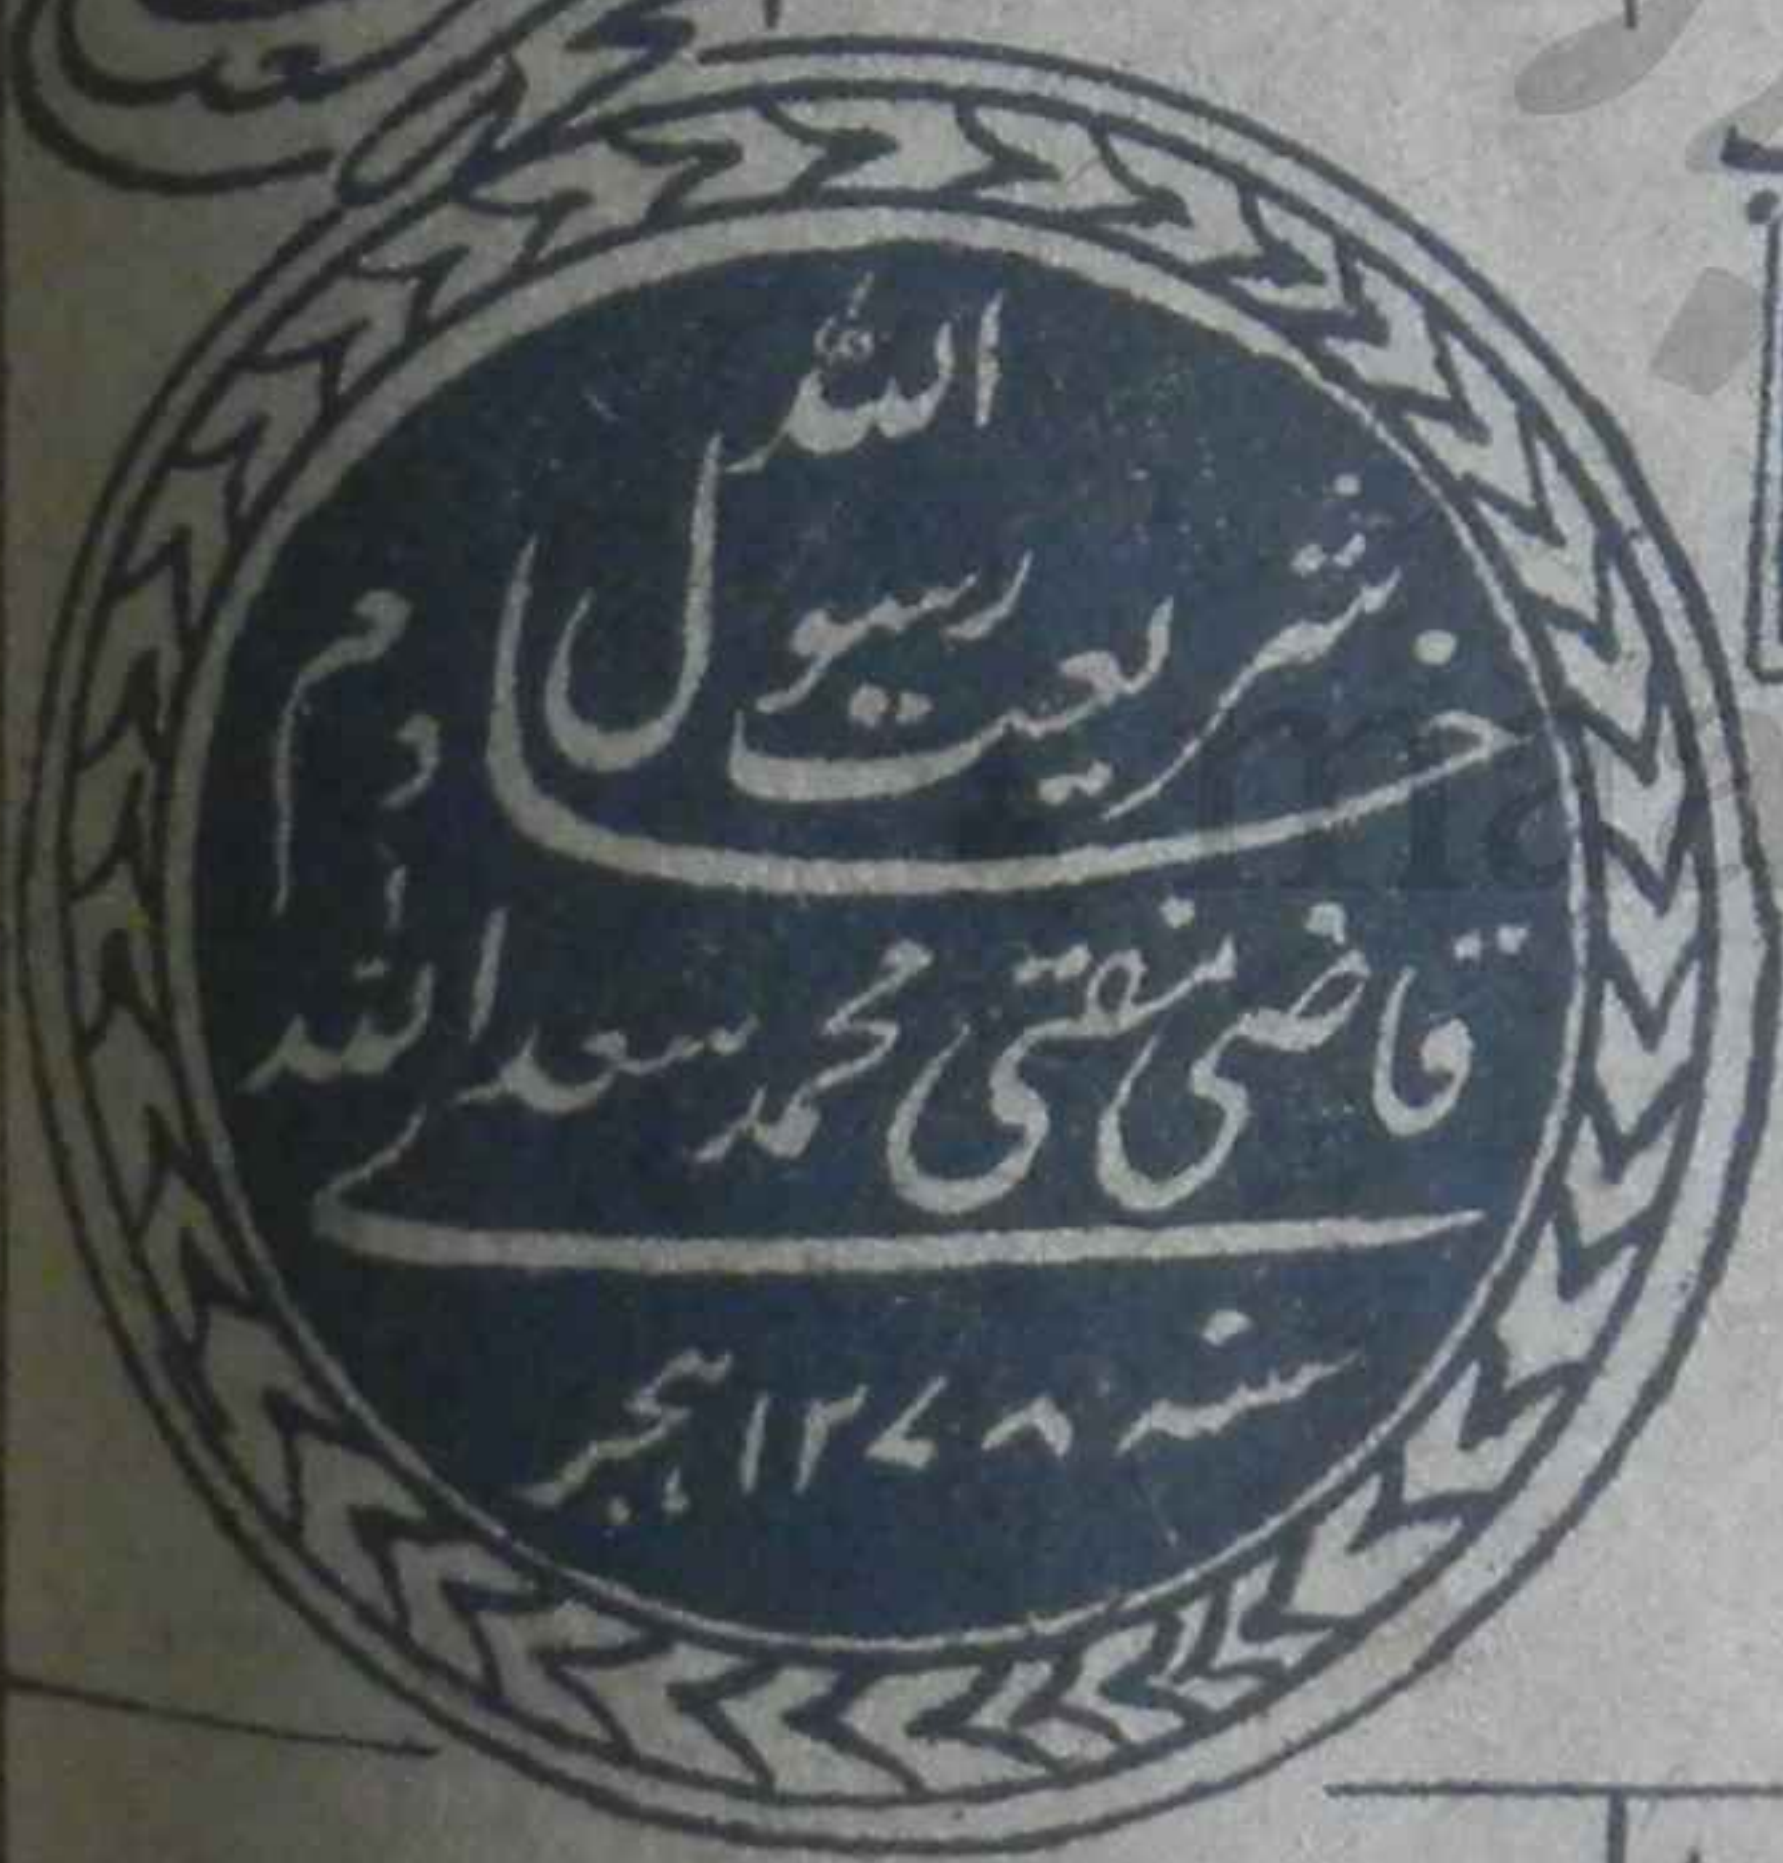 اللہ
خادم شریعت رسول
قاضی مفتی محمد سعد اللہ
سنہ ۱۲۷۸ ہجرے